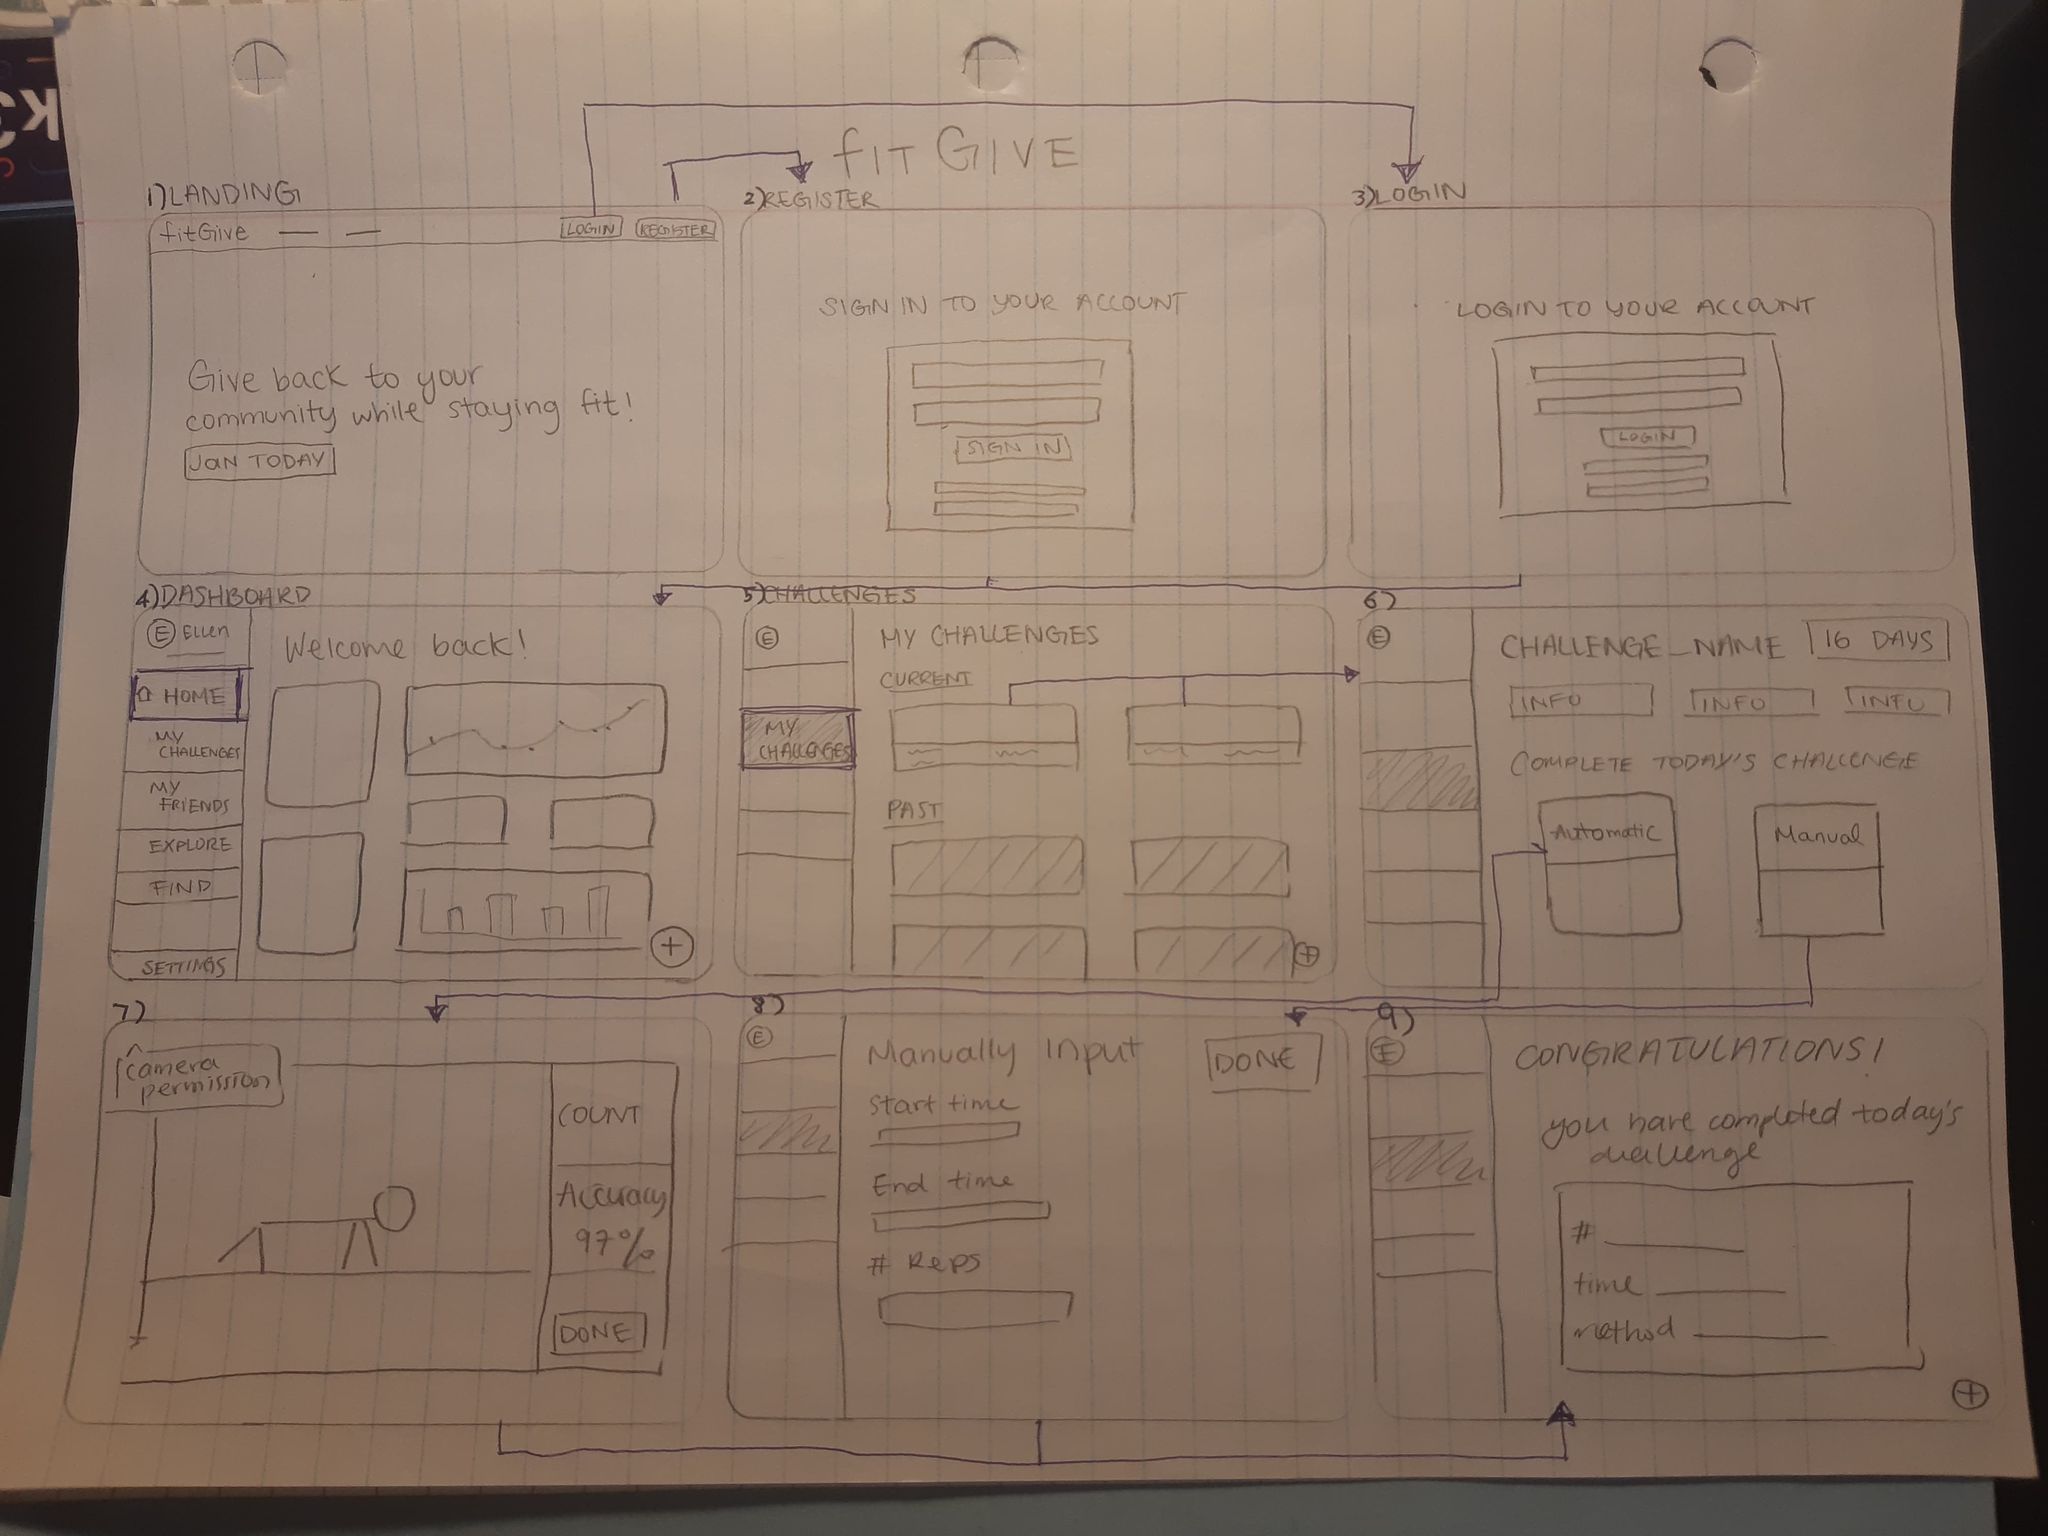 fitGIVE
1) LANDING
fitGive
LOGIN
REGISTER
Give back to your
community while staying fit!
JOIN TODAY
2) REGISTER
SIGN IN TO YOUR ACCOUNT
SIGN IN
3) LOGIN
LOGIN TO YOUR ACCOUNT
LOGIN
4) DASHBOARD
E ELLEN
HOME
MY
CHALLENGES
MY
FRIENDS
EXPLORE
FIND
SETTINGS
Welcome back!
+
5) CHALLENGES
E
MY
CHALLENGES
MY CHALLENGES
CURRENT
PAST
+
6)
E
CHALLENGE_NAME
16 DAYS
INFO
INFO
INFO
COMPLETE TODAY'S CHALLENGE
Automatic
Manual
7)
camera
permission
COUNT
Accuracy
97%
DONE
8)
E
Manually Input
DONE
Start time
End time
# Reps
9)
E
CONGRATULATIONS!
you have completed today's
challenge
#
time
method
+